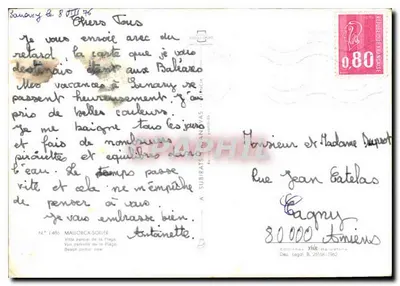 Sanary le 8 VIII 76
Chers Tous
Je vous envoie avec du
retard, la carte que je vous
destinais étant aux Baléares
Mes vacances à Sanary se
passent heureusement. J'ai
pris de belles couleurs.
Je me baigne tous les jours
et fais de nombreuses
pirouettes et équilibres dans
l'eau. Le temps passe
vite et cela ne m'empêche
de penser à vous.
Je vous embrasse bien.
Antoinette
0.80
Monsieur et Madame Dupont
Rue Jean Catelas
Cagny
80.000 Amiens
MALLORCA-SOLLER
Vista parcial de la Playa
Vue partielle de la Plage